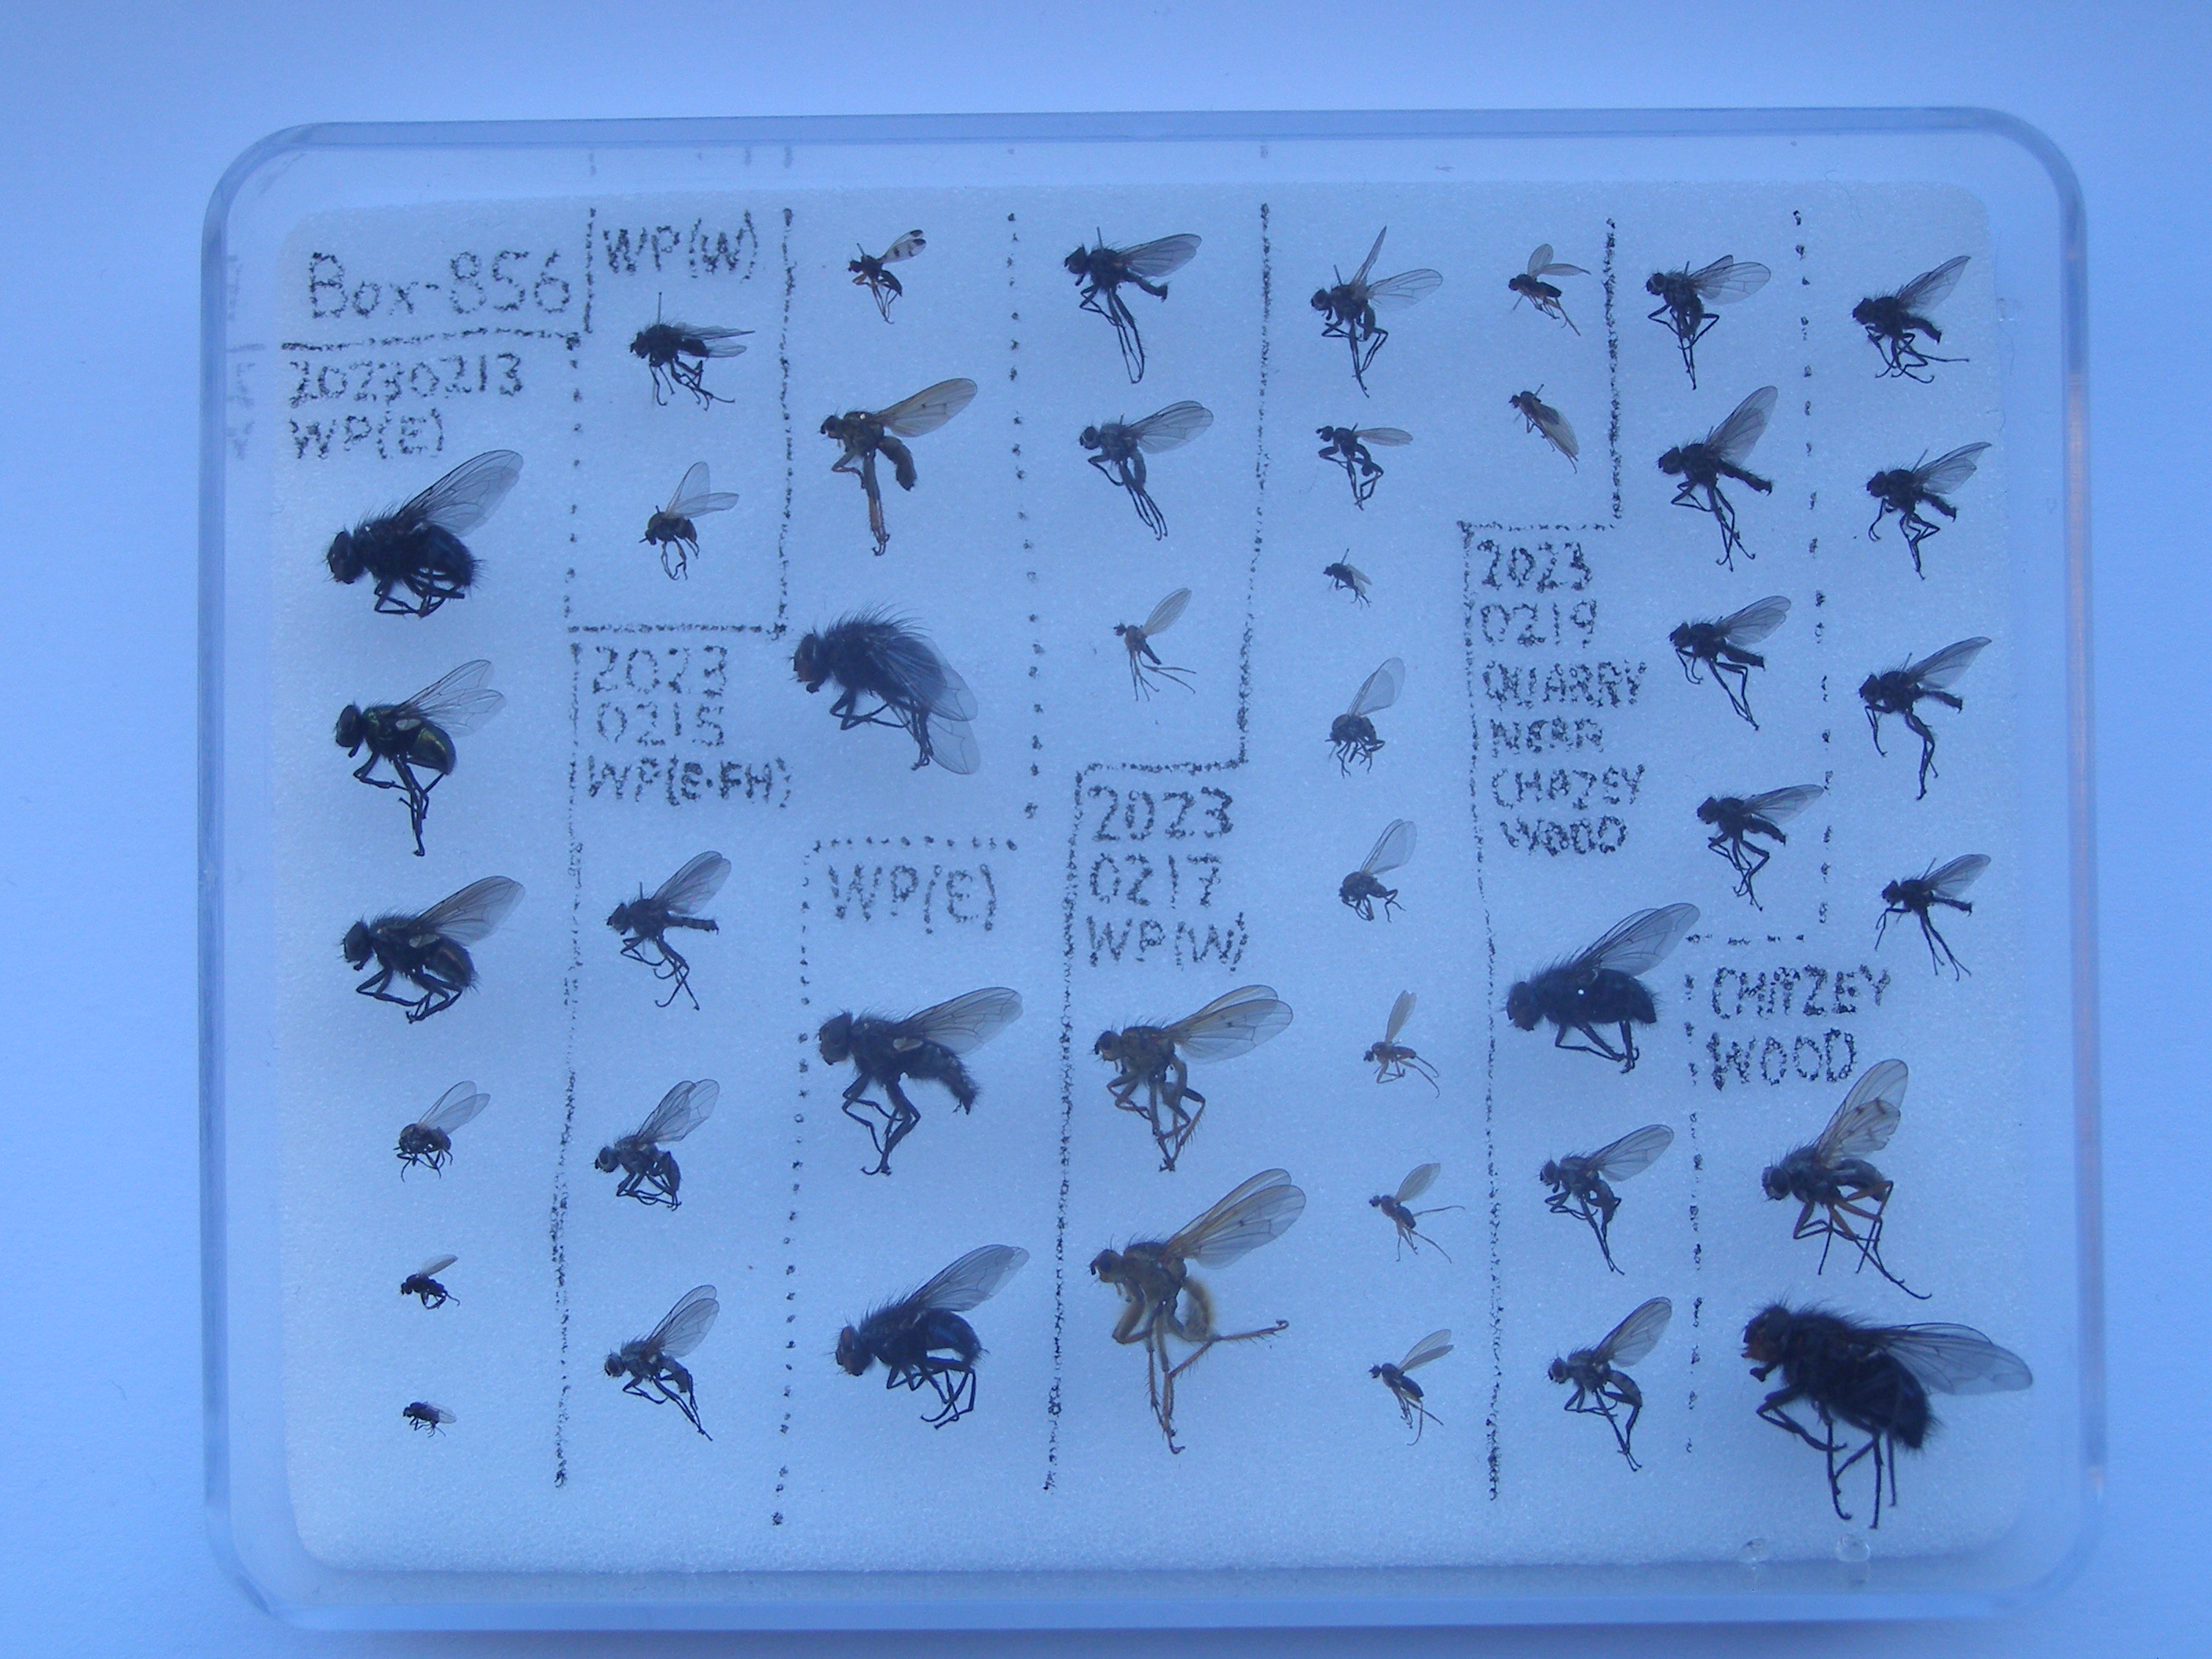 Box-856
20230213
WP(E)
WP(W)
2023
0215
WP(E·FH)
WP(E)
2023
0217
WP(W)
2023
0219
QUARRY
NEAR
CHAZEY
WOOD
CHAZEY
WOOD